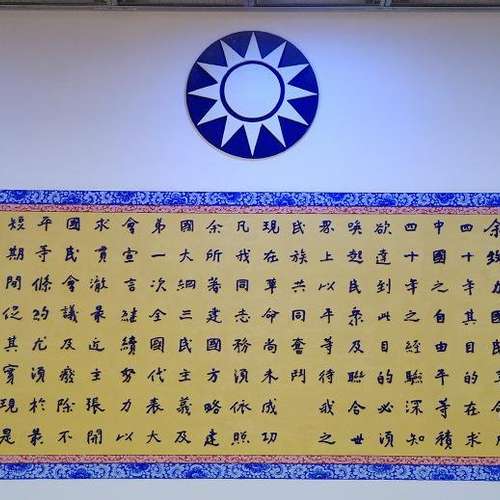 余致力國民革命凡
四十年其目的在求
中國之自由平等積
四十年之經驗深知
欲達到此目的必須
喚起民眾及聯合世
界上以平等待我之
民族共同奮鬥
現在革命尚未成功
凡我同志務須依照
余所著建國方略建
國大綱三民主義及
弟一次全國代表大
會宣言繼續努力以
求貫澈最近主張開
國民會議及廢除不
平等條約尤須於最
短期間促其實現是